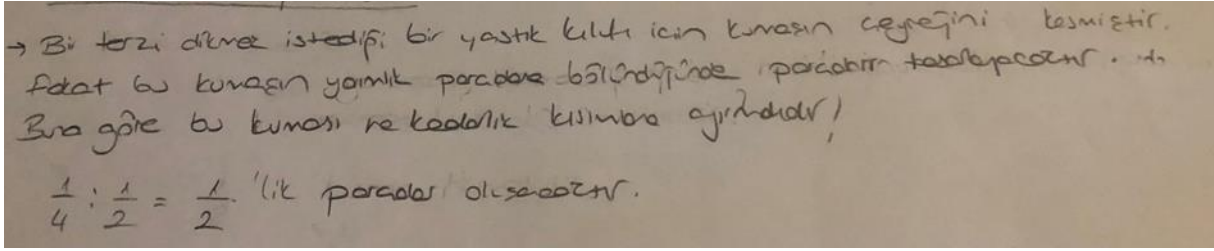 → Bir terzi dikmek istediği bir yastık kılıfı için kumaşın çeyreğini kesmiştir.
fakat bu kumaşın yarımlık parçalara bölündüğünde parçaların tasarlayacaktır.
Buna göre bu kumaşı ne kadarlık kısımlara ayırmalıdır!
1/4 : 1/2 = 1/2 'lik parçalar oluşacaktır.